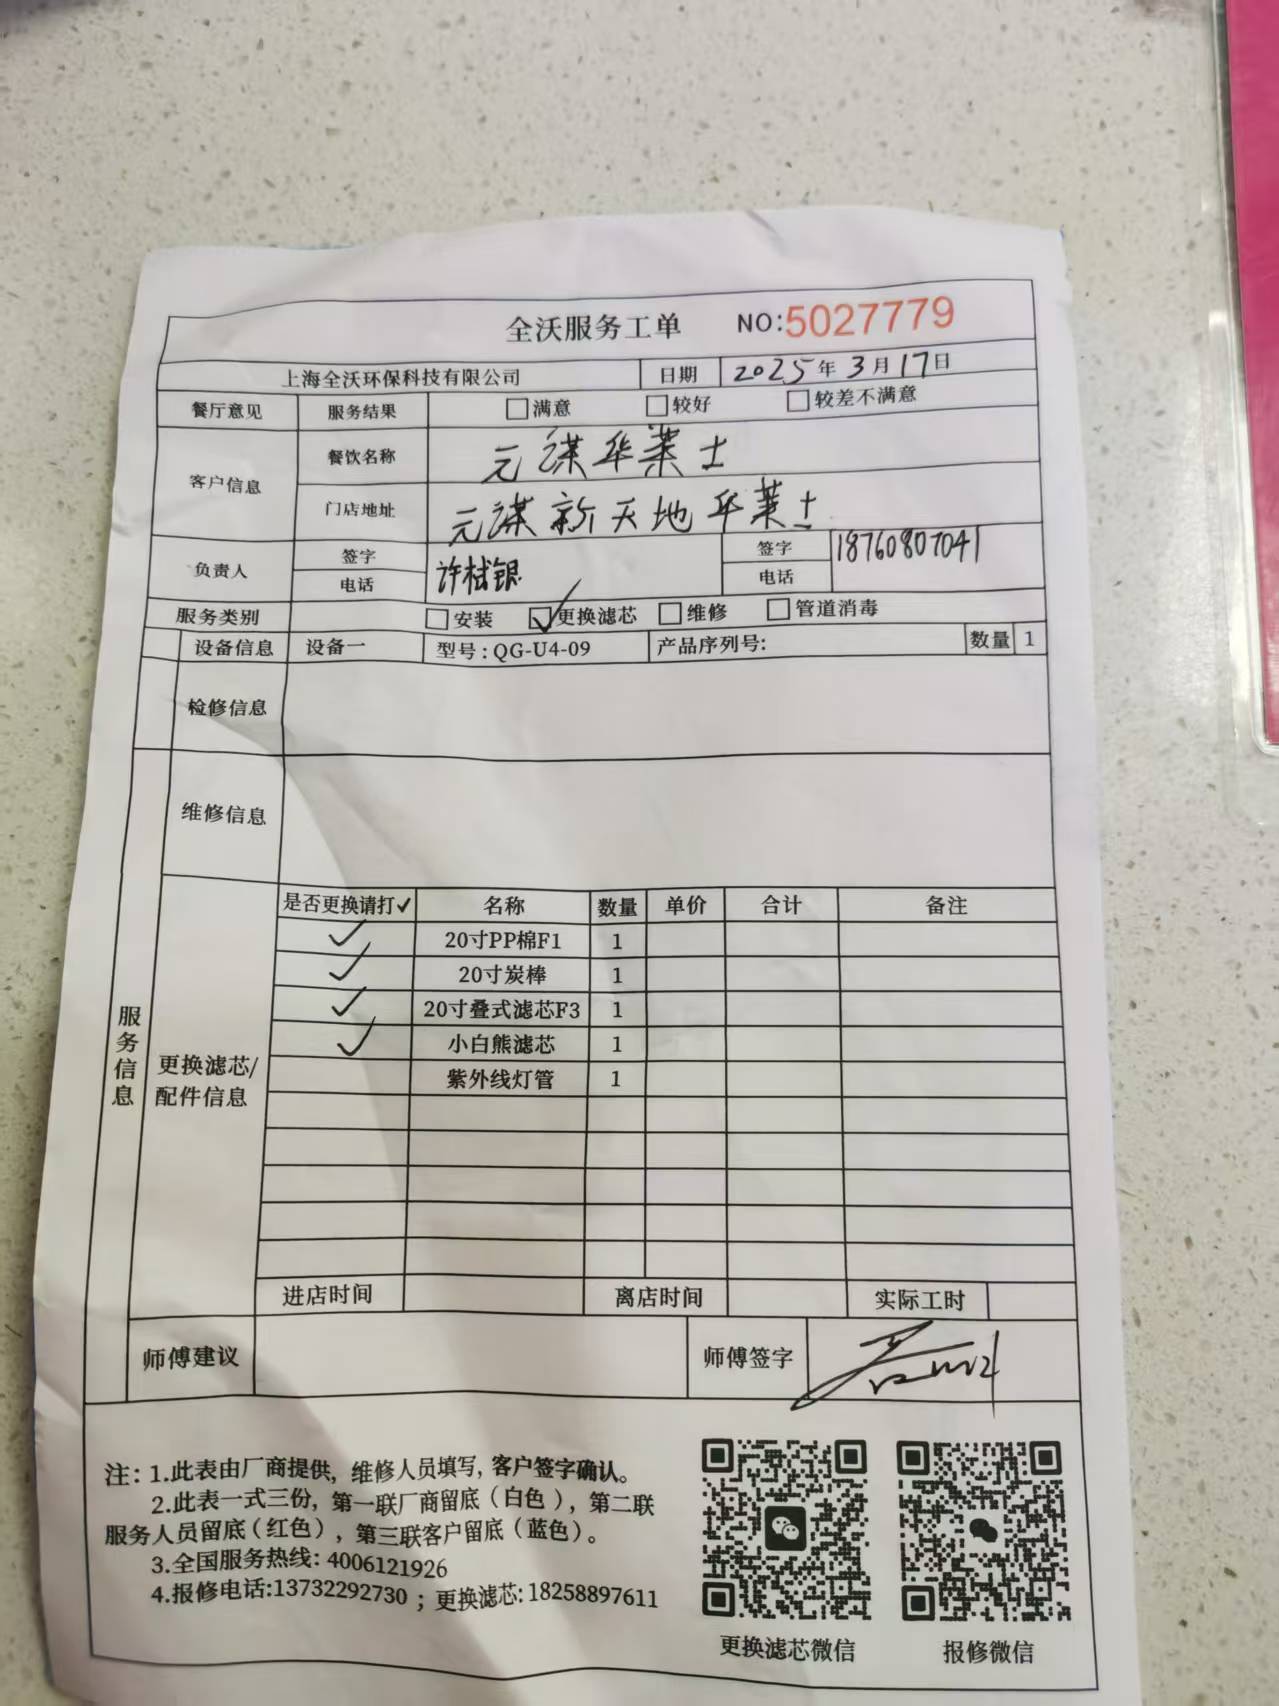 全沃服务工单 NO:5027779
上海全沃环保科技有限公司 日期 2025年3月17日
餐厅意见 服务结果 □满意 □较好 □较差不满意
客户信息 餐饮名称 元谋华莱士
门店地址 元谋新天地华莱士
负责人 签字 签字 18760807041
电话 许 银 电话
服务类别 □安装 ☑更换滤芯 □维修 □管道消毒
设备信息 设备一 型号:QG-U4-09 产品序列号: 数量 1
检修信息
维修信息
服务信息
更换滤芯/
配件信息
是否更换请打✓ 名称 数量 单价 合计 备注
✓ 20寸PP棉F1 1
✓ 20寸炭棒 1
✓ 20寸叠式滤芯F3 1
✓ 小白熊滤芯 1
紫外线灯管 1
进店时间 离店时间 实际工时
师傅建议 师傅签字
注:1.此表由厂商提供,维修人员填写,客户签字确认。
2.此表一式三份,第一联厂商留底(白色),第二联
服务人员留底(红色),第三联客户留底(蓝色)。
3.全国服务热线:4006121926
4.报修电话:13732292730;更换滤芯:18258897611
更换滤芯微信 报修微信